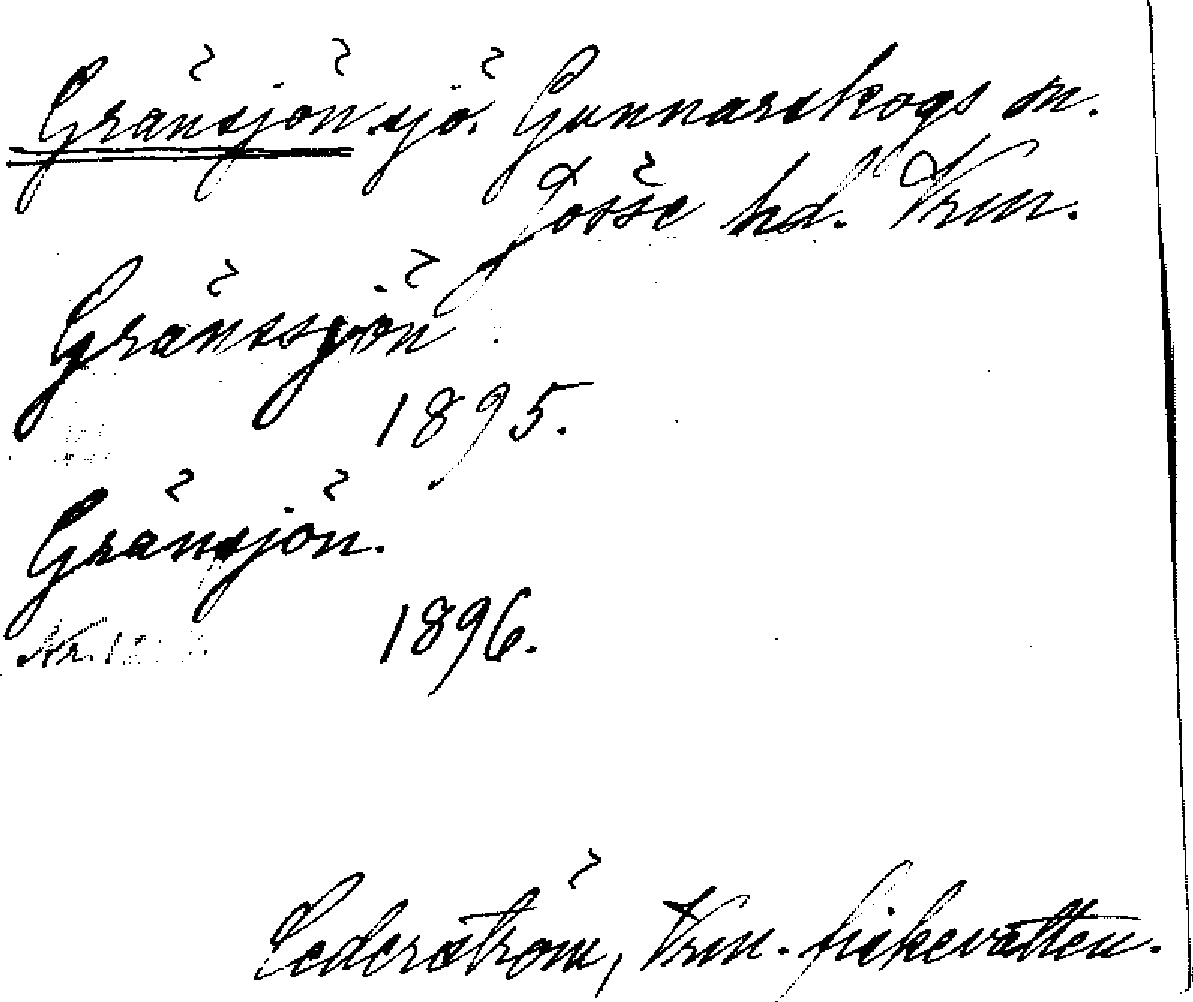 Gränsjön sjö. Gunnarskogs sn.
Jösse hd. Vrm.
Gränssjön
1895.
Gränsjön.
1896.
Cederström, Vrm. fiskevatten.